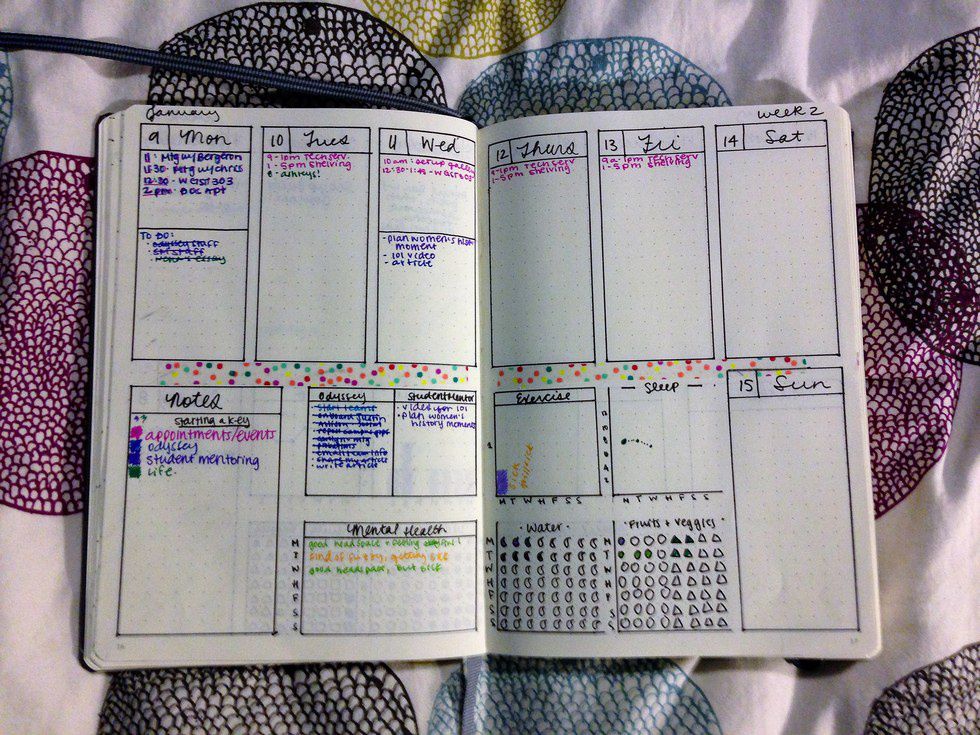 January
week 2
9 Mon
11 - Mtg w/Bergeron
11:30 - Mtg w/chris
12:30 - WGIST 303
2 pm - Dos Apt
TO DO:
- odyssey stuff
- SM stuff
10 Tues
9 - 1pm Tech serv.
1 - 5pm shelving
8 - ashleys!
11 Wed
10 am - setup
12:30 - 1:45 -
- plan women's hist
moment
- 101 video
- article
12 Thurs
9-1pm Tech serv
1-5pm shelving
13 Fri
9a-1pm Tech serv
1-5pm shelving
14 Sat
Notes
starting a key
appointments/events
odyssey
student mentoring
life
odyssey
- start teams
- write article
Student Mentor
- video for 101
- plan women's
history moment
Mental Health
M good headspace + feeling
T kind of funky, getting sick
W good headspace, but sick
H
F
S
S
Exercise
sick
M T W H F S S
Sleep
M T W H F S S
15 Sun
Water
M
T
W
H
F
S
S
Fruits + Veggies
M
T
W
H
F
S
S